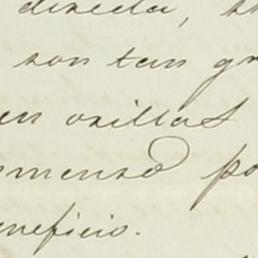 directa, s
son tan gr
en orillas
menso po
neficio.